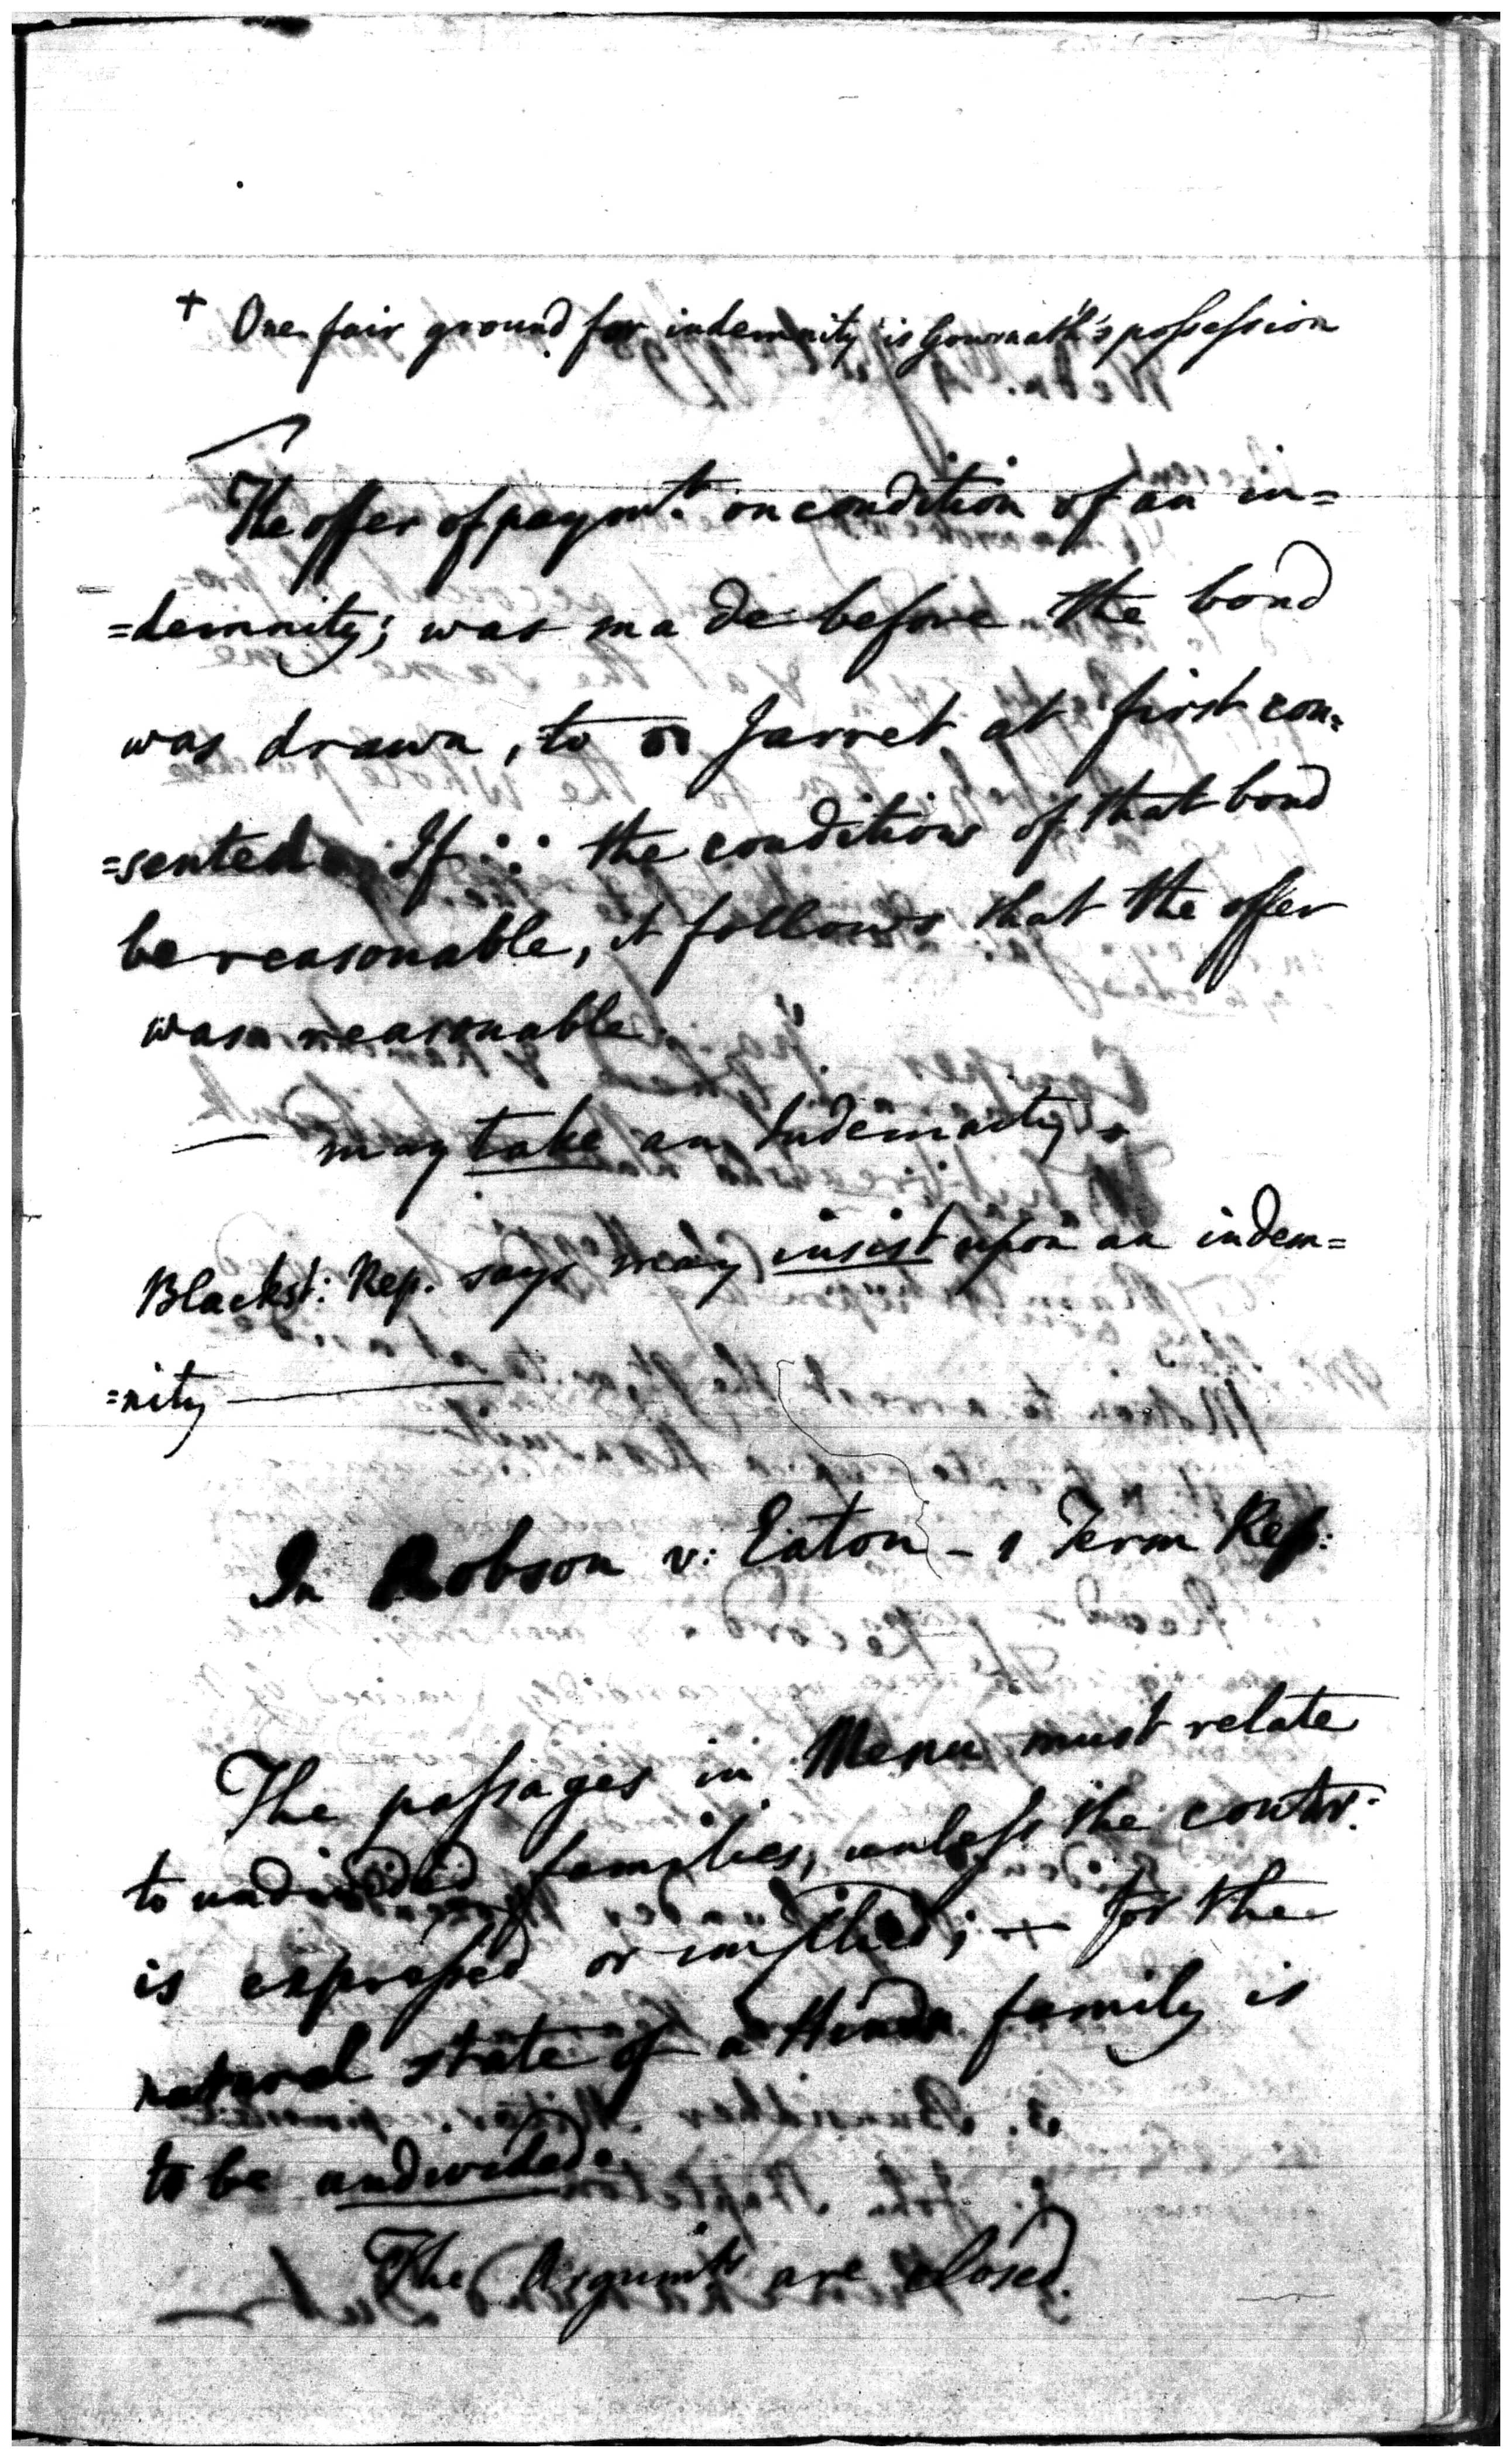 + One fair ground for indemnity is Gournath's possession
The offer of paymt. on condition of an in=
=demnity; was made before the bond
was drawn, to Jarret at first con=
=sented. If ∴ the conditions of that bond
be reasonable, it follows that the offer
was reasonable.
— may take an Indemnity.
Blackst: Rep. says may insist upon an indem=
=nity —
In Robson v: Eaton - 1 Term Rep:
The passages in Menu must relate
to undivided families, unless the contr:
is expressed or implied; — for the
natural state of a Hindu family is
to be undivided.
The Argumts are closed.